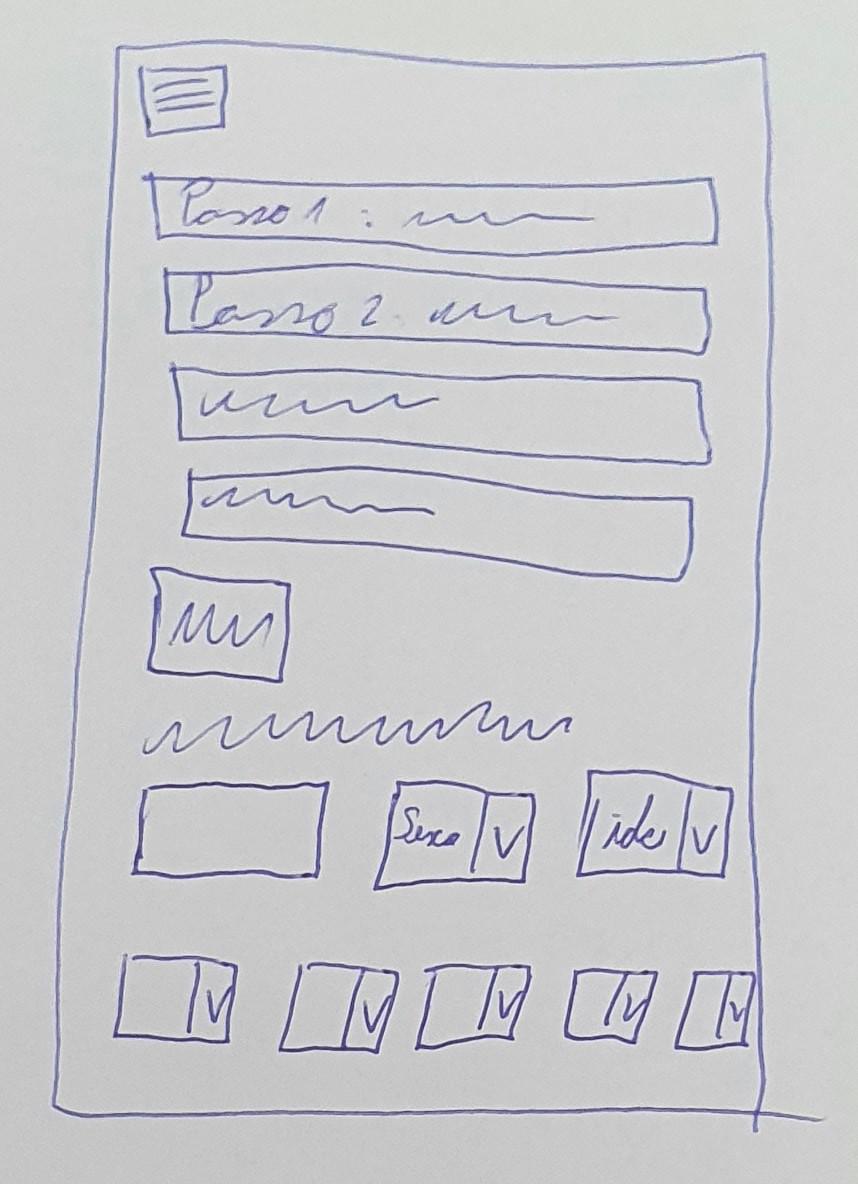 Passo 1 :
Passo 2.
Sexo V ide V
V V V V V